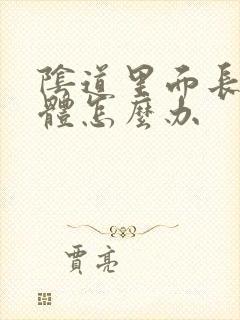 陰道里而長
體怎麼办
賈亮